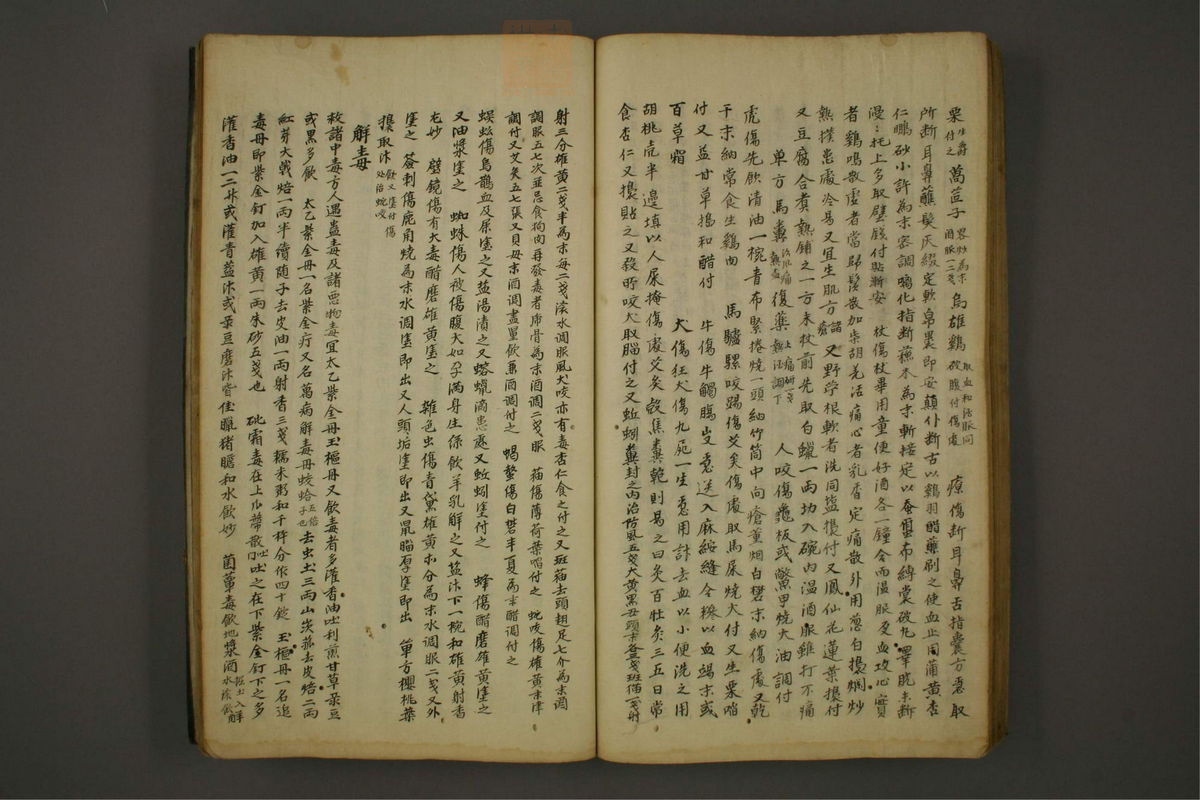 栗生嚼付之 萵苣子畧炒爲末酒服二三戔 烏雄鷄取血和活服同破腹付傷處 療傷斷耳鼻舌指囊方急取
所斷耳鼻蘸髮灰綴定軟帛裹即安顛仆斷舌以鷄羽醮藥刷之使血止用蒲黃杏
仁鵬砂小許爲末蜜調噙化指斷蘇木爲末斬接定以蚕繭布縛裳破九睪脫未斷
漫漫托上多取壁錢付貼斷安 杖傷杖畢用童便好酒各一鐘合而溫服免血攻心實
者鷄鳴散虛者當歸鬚散加柴胡羌活痛心者乳香定痛散外用葱白搗爛炒
熱撲患處冷易又宜生肌方 又野苧根軟者洗同塩搗付又鳳仙花蓮葉搗付
又豆腐合煮熱鋪之一方未杖前先取白蠟一兩切入碗內溫酒服雖打不痛
單方馬糞治肌痛熱盦 復藥上痛硏一戔熱酒調下 人咬傷龜板或鱉甲燒火油調付
虎傷先飮淸油一椀靑布緊捲燒一頭納竹筒中向瘡薰烟白礬末納傷處又乾
干末納常食生鷄肉 馬驢騾咬踢傷艾灸傷處取馬尿燒火付又生栗嚙
付又益甘草搗和醋付 牛傷牛觸腸出急送入麻絲縫合糝以血竭末或
百草霜 犬傷狂犬傷九死一生急用 去血以小便洗之用
胡桃壳半邊塡以人尿掩傷處艾灸殼焦糞乾則易之曰灸百壯灸三五日常
食杏仁又搗貼之又殺所咬犬取腦付之又蚯蚓糞封之內治防風五戔大黃黑丑頭末各三戔班猫一戔射
射三分雄黃二戔半爲末每二戔滾水調服風犬咬亦有毒杏仁食之付之又斑猫去頭翅足七介爲末酒
調服五七次並忌食狗肉再發毒者虎骨爲末酒調二戔服 猫傷薄荷葉嚙付之 蛇咬傷雄黃末津
調付又艾灸五七張又貝母末酒調盡量飮兼酒調付之 蝎螫傷白礬半夏爲末醋調付之
蜈蚣傷烏鷄血及尿塗之又塩湯漬之又蠟滴患處又蚯蚓塗付之 蜂傷醋磨雄黃塗之
又油漿塗之 蜘蛛傷人被傷腹大如孕滿身生絲飮羊乳解之又塩汁下一椀和雄黃射香
尤妙 壁鏡傷有大毒醋磨雄黃塗之 雜色虫傷靑黛雄黃亦分爲末水調服二戔又外
塗之 簽刺傷鹿角燒爲末水調塗即出又人頭垢塗即出又鼠腦厚塗即出 單方櫻桃葉
搗取汁飮又塗付傷處治蛇咬
解毒
救諸中毒方人遇蠱毒及諸惡物毒冝太乙紫金丹玉樞丹又飮毒者多灌香油吐利煎甘草菉豆
或黑多飮 太乙紫金丹一名紫金疔又名萬病解毒丹蛟蛤五倍子也去虫土三兩山茨菰去皮焙二兩
紅芽大戟焙一兩半續隨子去皮油一兩射香三戔糯米粥和千杵分作四十錠 玉樞丹一名追
毒丹即紫金釘加入雄黃一兩朱砂五戔也 砒霜毒在上瓜蔕散吐之在下紫金釘下之多
灌香油一二升或灌靑藍汁或菉豆磨汁皆佳臘猪膽和水飮妙 菌蕈毒飮地漿酒